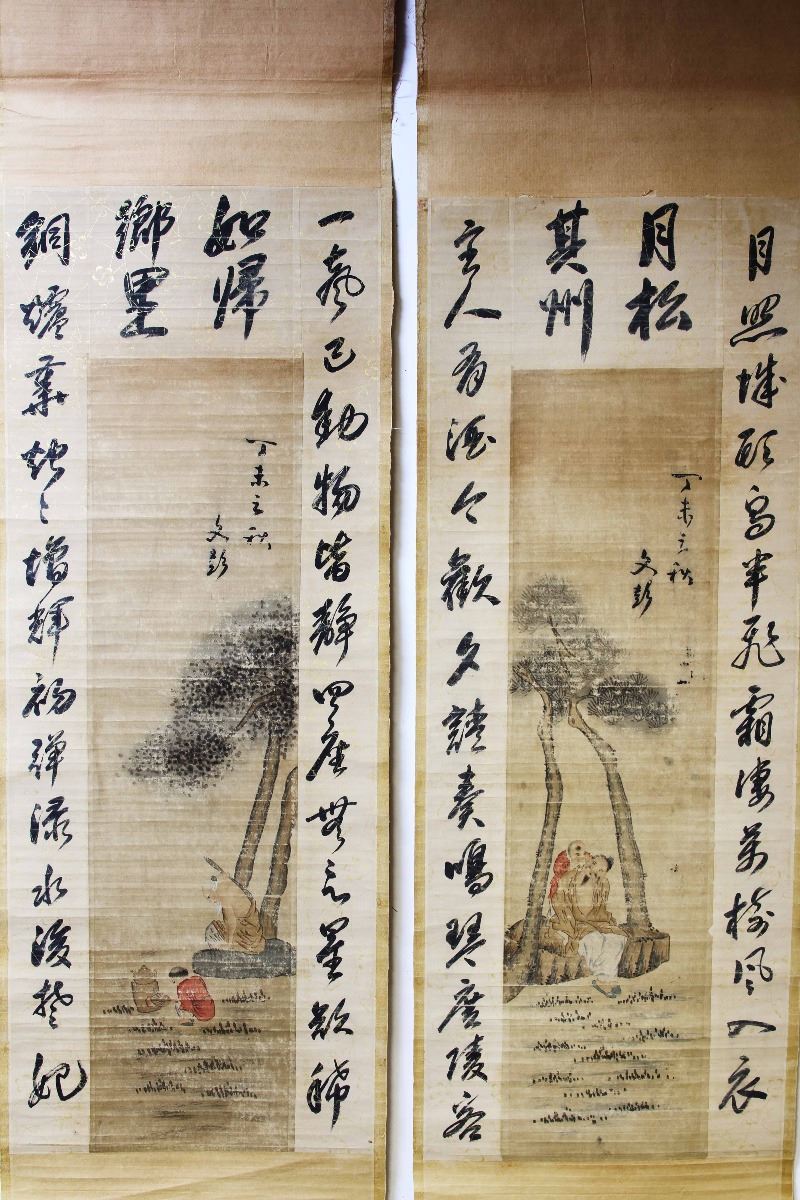 月照城頭烏半飛霜淒萬樹風入衣
月松
其州
丁未立秋
文彭
主人有酒今歡夕請奏鳴琴廣陵客
一聲已動物皆靜四座無言星欲稀
如帰
鄉里
丁未立秋
文彭
銅爐華燭々增輝初彈淥水後楚妃